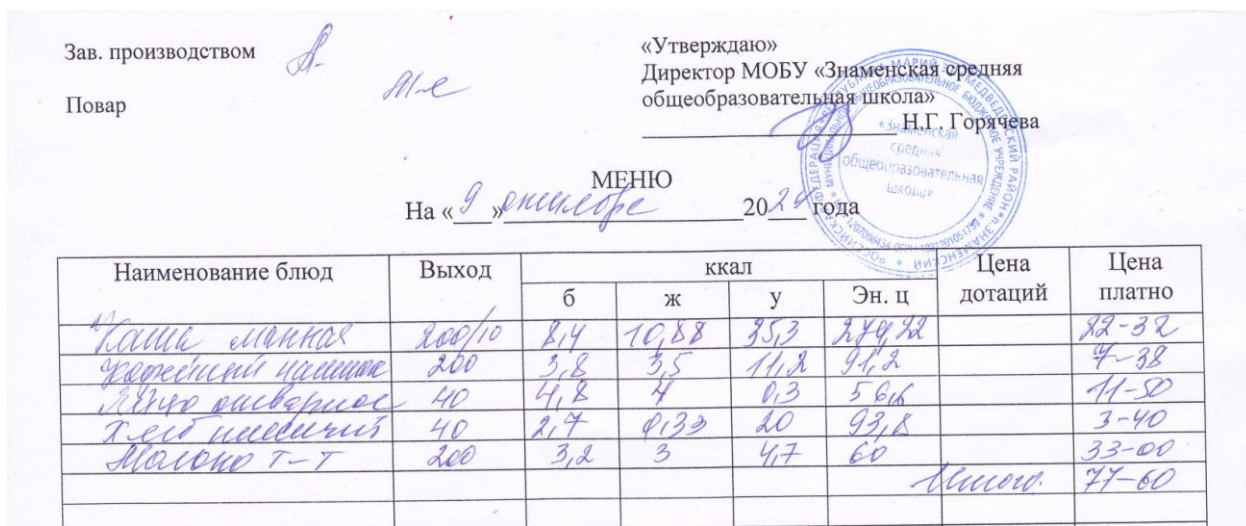 Зав. производством
«Утверждаю»
Директор МОБУ «Знаменская средняя
общеобразовательная школа»
Повар
Н.Г. Горячева
«Знаменская
средняя
общеобразовательная
школа»
МЕНЮ
На « 9 » октября 2024 года
Наименование блюд Выход ккал Цена дотаций Цена платно
б ж у Эн. ц
Каша манная 200/10 8,4 10,88 35,3 22-32
Кофейный напиток 200 3,8 3,5 11,2 91,2 7-38
Яйцо отварное 40 4,8 4 0,3 56,6 11-50
Хлеб пшеничный 40 2,7 0,33 20 93,8 3-40
Молоко т-т 200 3,2 3 4,7 60 33-00
Итого. 77-60